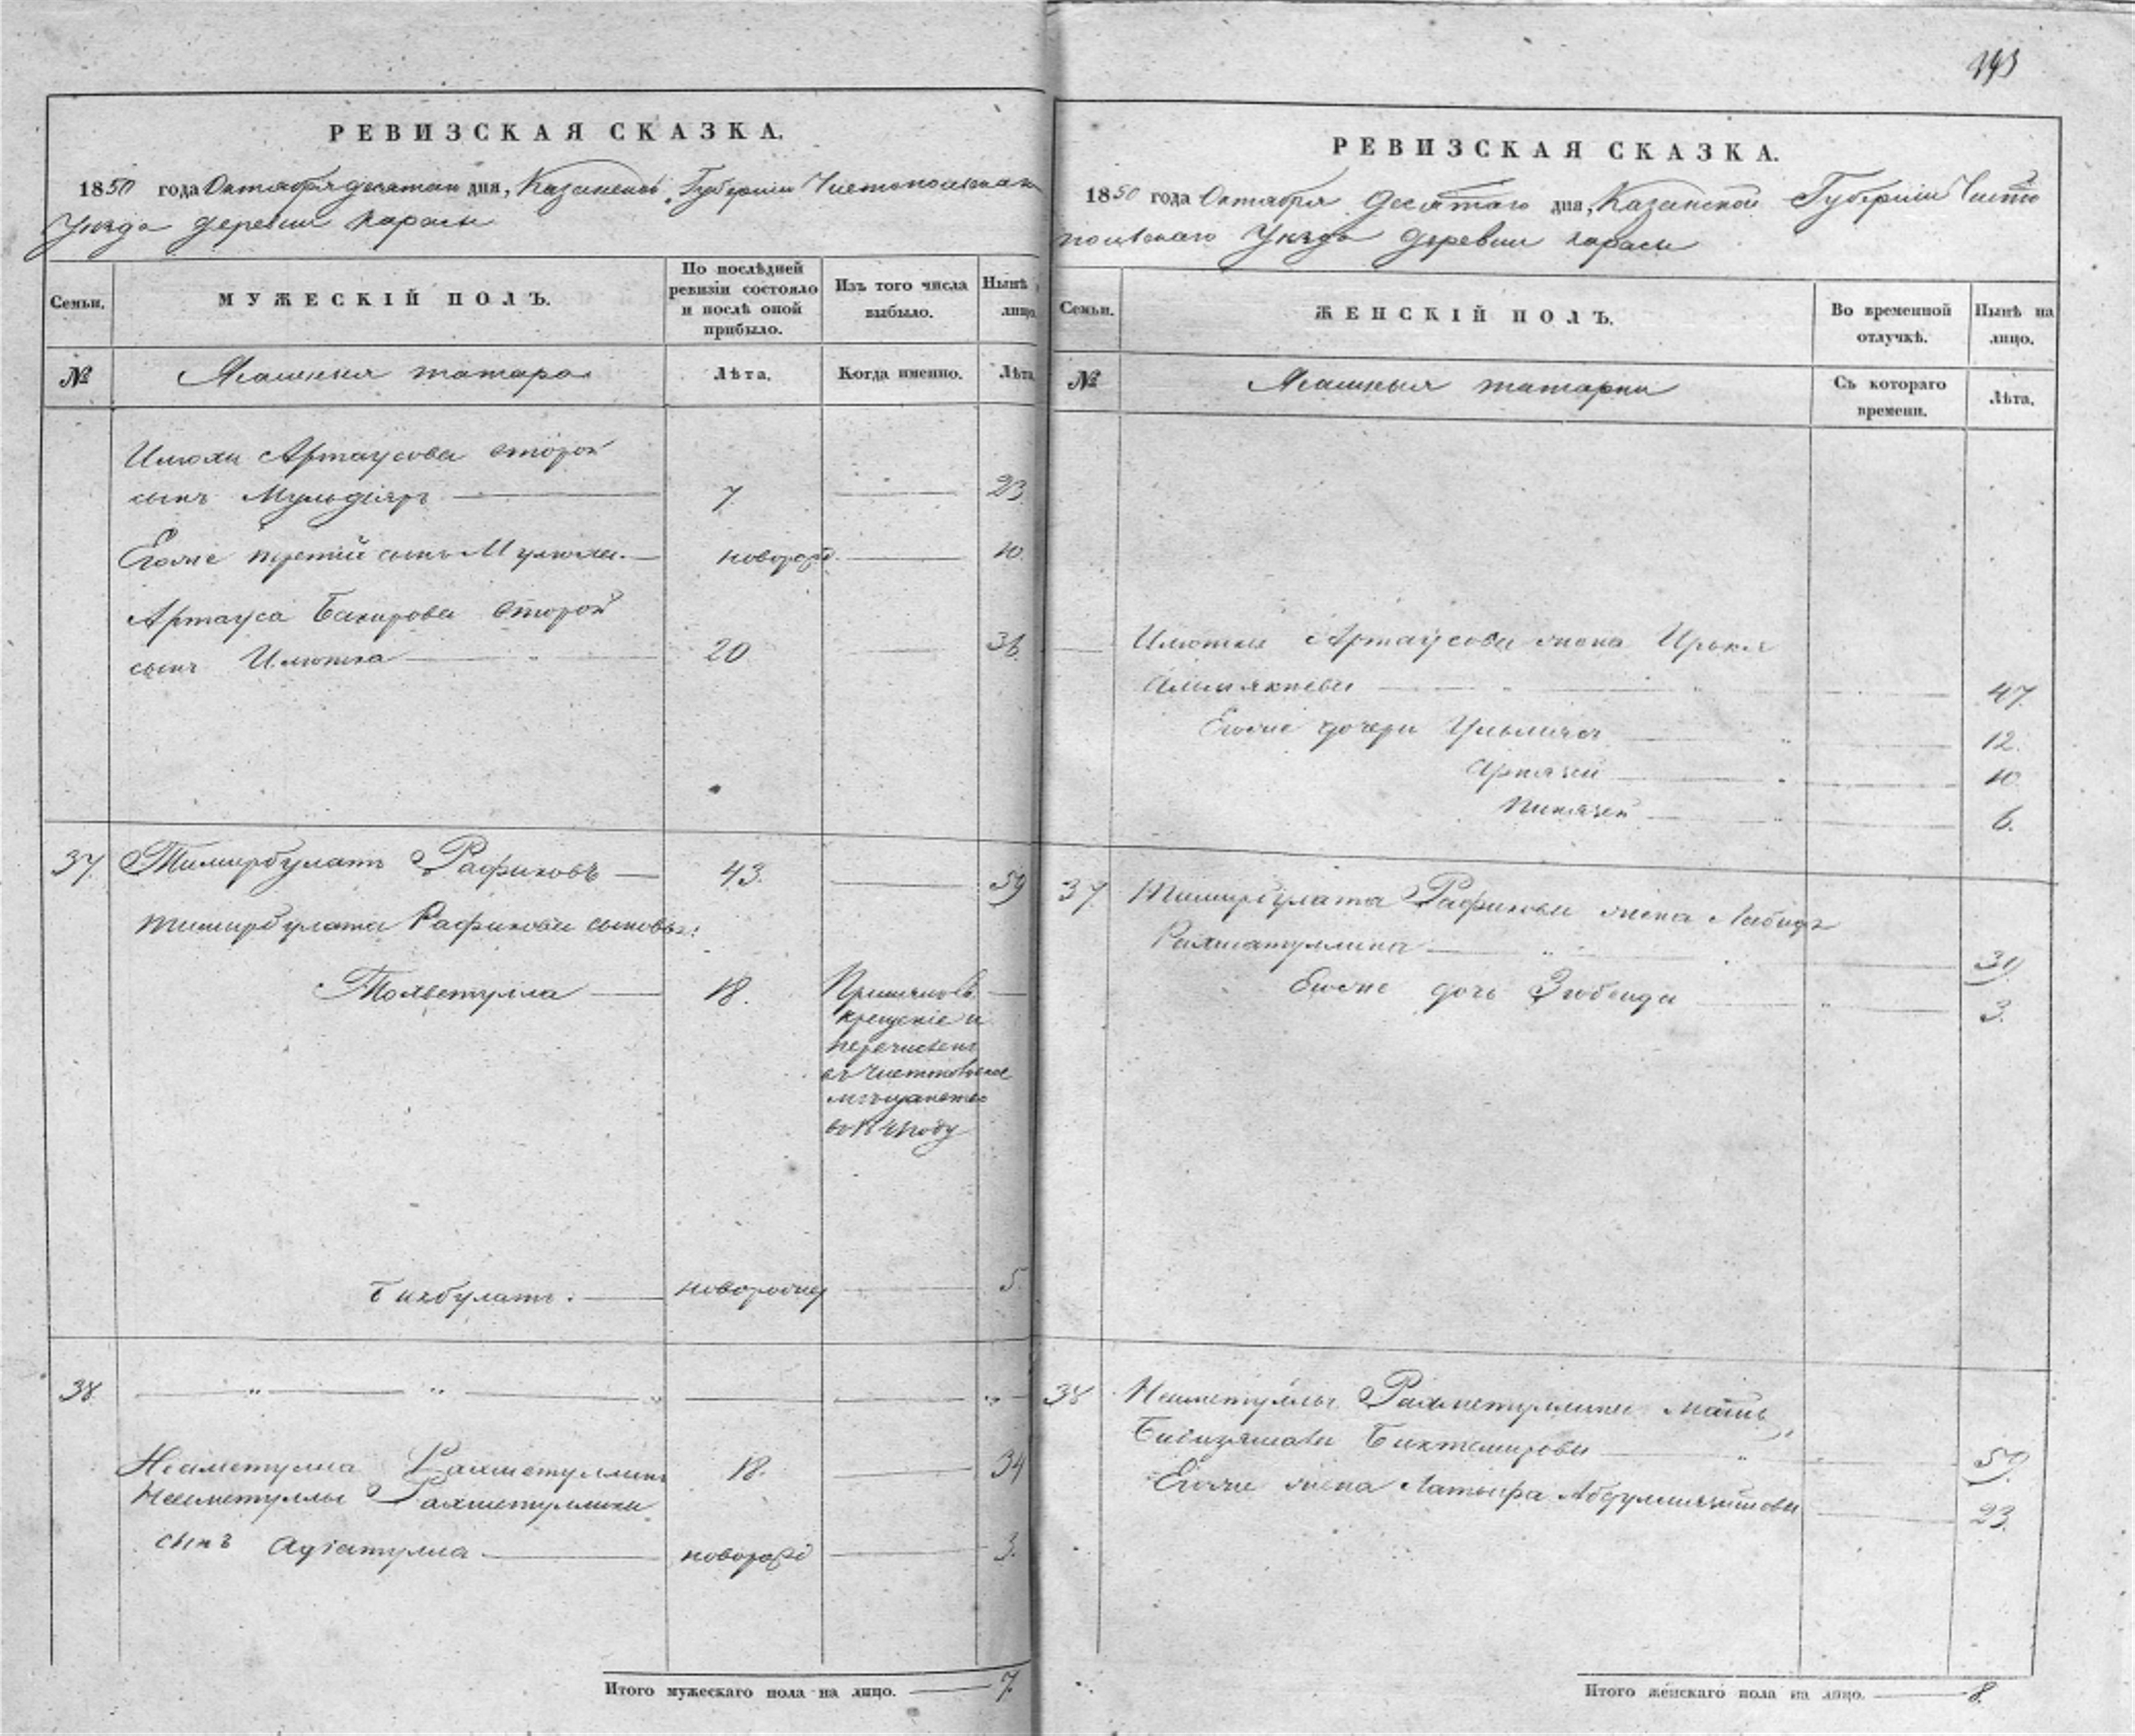 193
РЕВИЗСКАЯ СКАЗКА.
1850 года Октября десятаго дня, Казанской Губернiи Чистопольскаго
Уезда деревни Карасы
Семьи.
МУЖЕСКІЙ ПОЛЪ.
По послѣдней ревизіи состояло и послѣ оной прибыло.
Изъ того числа выбыло.
Нынѣ лицо
№
Ясашныя татара
Лѣта.
Когда именно.
Лѣта
Артаусова второй
сынъ Мульдіяръ 7. 23.
Егоже третій сынъ новорожд. 10.
Артауса Бакирова второй
сынъ Илюшка 20 36.
37. Тимирбулатъ Рафиковъ 43. 59
Тимирбулата Рафикова сыновья:
18. Принялъ
крещеніе и
перечисленъ
въ Чистопольское
мѣщанство
году
Бикбулатъ. новорожд 5.
38.
Неаметулла Рахметуллинъ 18. 34
Неаметуллы Рахметуллина
сынъ Адіатулла новорожд 3.
Итого мужескаго пола на лицо. 7.
РЕВИЗСКАЯ СКАЗКА.
1850 года Октября десятаго дня, Казанской Губерніи Чисто
польскаго Уезда деревни Карасы
Семьи.
ЖЕНСКІЙ ПОЛЪ.
Во временной отлучкѣ.
Нынѣ на лицо.
№
Ясашныя татарки
Съ котораго времени.
Лѣта.
Илюшки Артаусова жена
47.
Егоже дочери 12.
10.
6.
37. Тимирбулата Рафикова жена
Рахматуллина 39.
Егоже дочь Зюбейда 3.
38 Неаметуллы Рахметуллина мать
Биктемирова 59.
Егоже жена Латыфа 23.
Итого женскаго пола на лицо. 8.